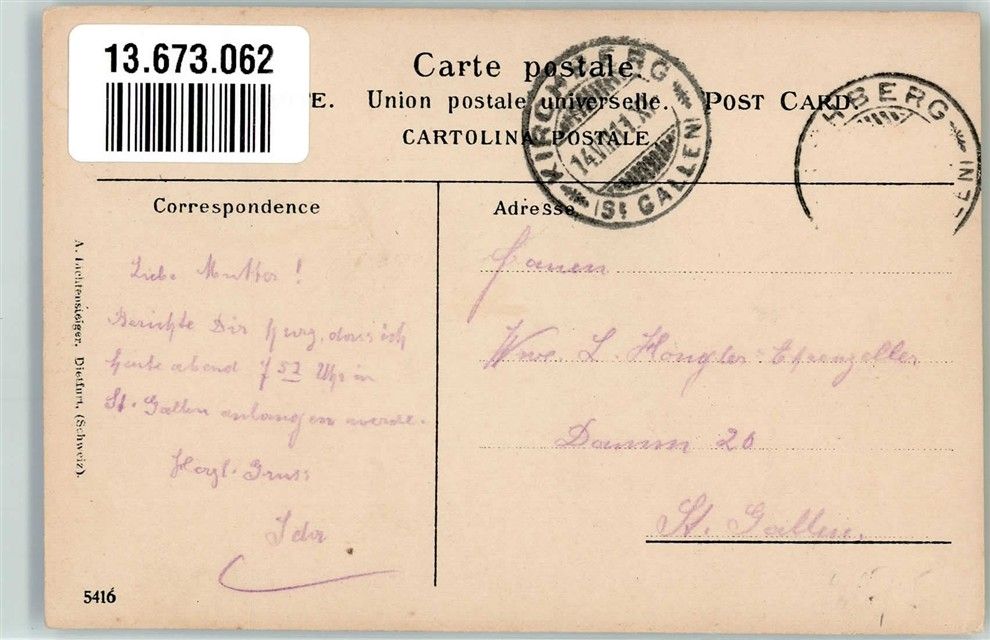 13.673.062
Carte postale.
TE. Union postale universelle. POST CARD
CARTOLINA POSTALE
KIRCHBERG
14.VII.11.XI
(St GALLEN)
HBERG
LEN)
Correspondence
Adresse
Liebe Mutter!
Berichte Dir kurz, dass ich
heute abend 7 52 Uhr in
St. Gallen anlangen werde.
Herzl. Gruss
Ida
Frauen
Wwe. L. Hongler-
Damm 20
St. Gallen.
A. Lichtensteiger, Dietfurt, (Schweiz).
5416